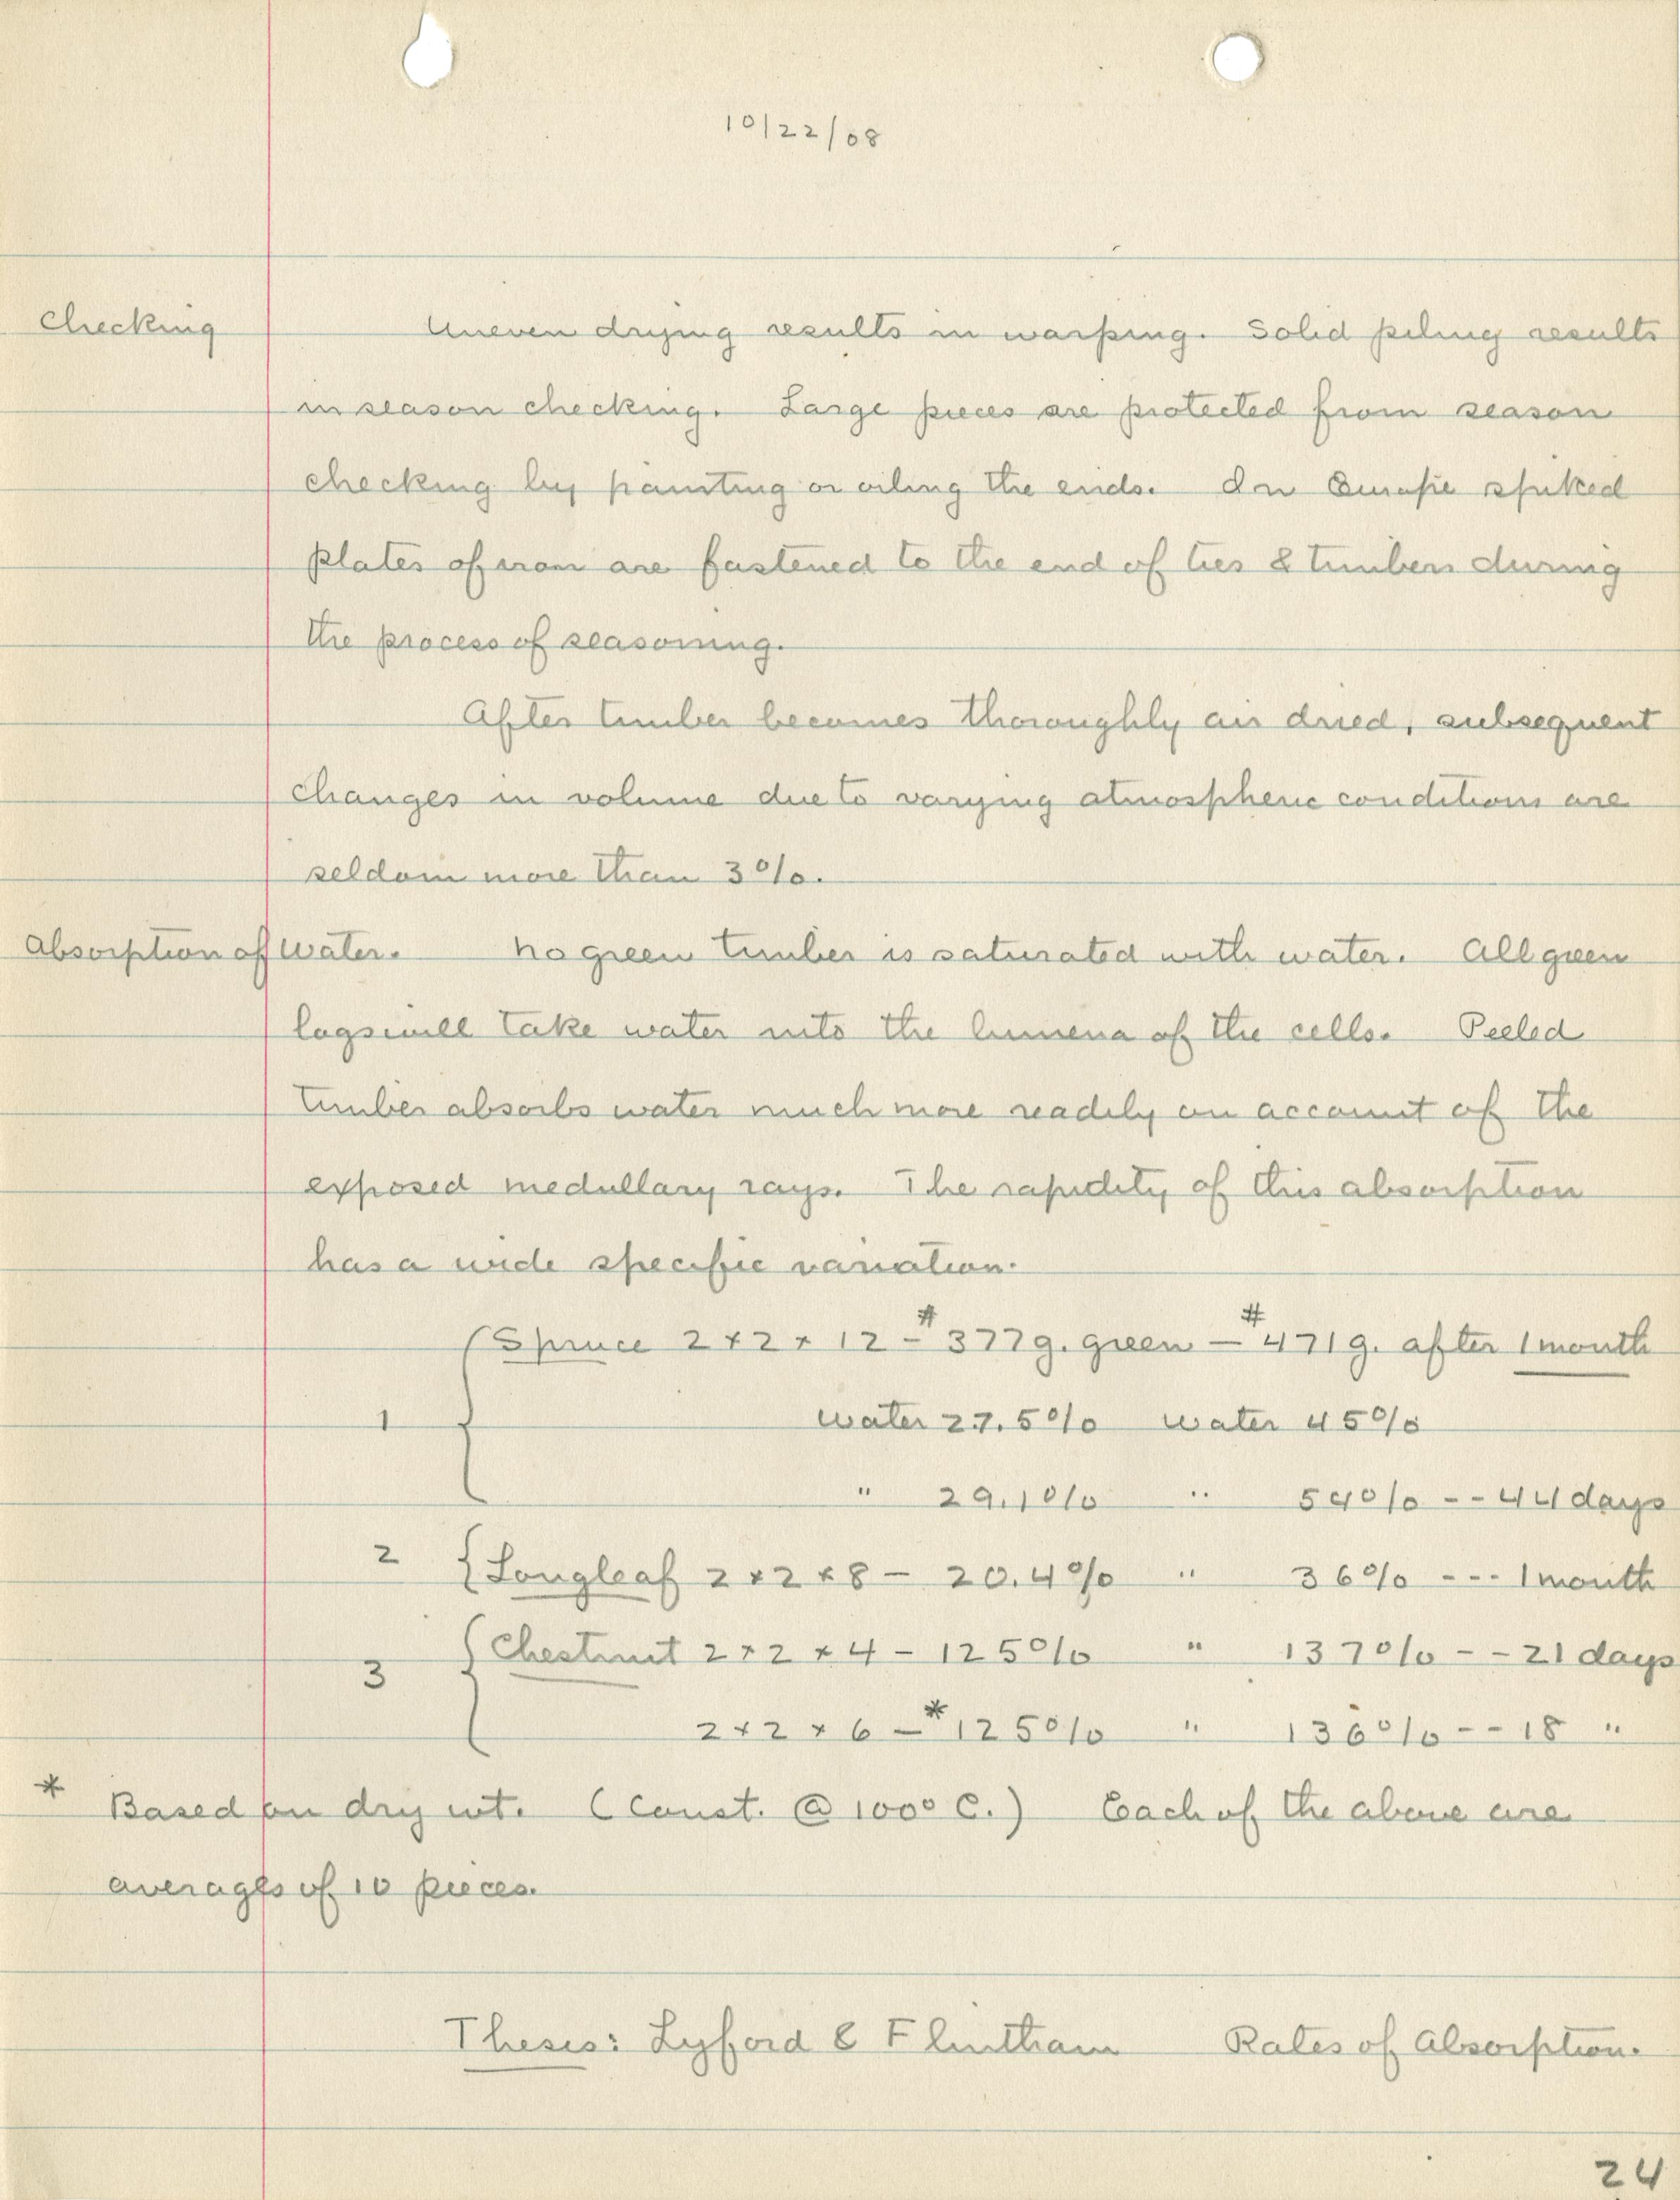 10/22/08
Checking Uneven drying results in warping. Solid piling results
in season checking. Large pieces are protected from season
checking by painting or oiling the ends. In Europe spiked
plates of iron are fastened to the end of ties & timbers during
the process of seasoning.
After timber becomes thoroughly air dried, subsequent
changes in volume due to varying atmospheric conditions are
seldom more than 3%.
Absorption of water. No green timber is saturated with water. All green
logs will take water into the lumena of the cells. Peeled
timber absorbs water much more readily on account of the
exposed medullary rays. The rapidity of this absorption
has a wide specific variation.
Spruce 2 x 2 x 12 - # 377g. green - # 471g. after 1 month
1 water 27.5% water 45%
" 29.1% " 54% -- 44 days
2 { Longleaf 2 x 2 x 8 - 20.4% " 36% --- 1 month
3 Chestnut 2 x 2 x 4 - 125% " 137% -- 21 days
2 x 2 x 6 - * 125% " 136% -- 18 "
* Based on dry wt. (Const. @ 100° C.) Each of the above are
averages of 10 pieces.
Thesis: Lyford & Flintham Rates of Absorption.
24